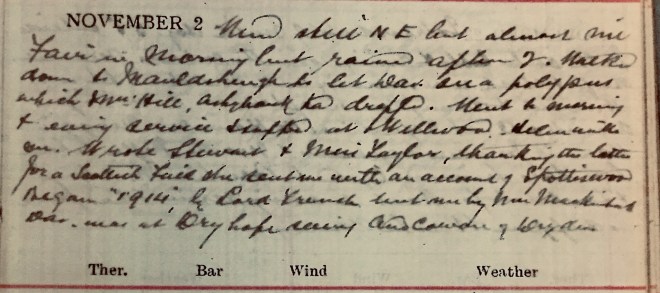 NOVEMBER 2 Wind still N E but almost nil
Fair in morning but rained after 2. Walked
down to to let Dav. on a polypus
which Mr Hill, Ashybank had . Went to morning
& evening service & at Wellwood. Helen with
me. Wrote Stewart & Miss Taylor, thanking the latter
for a Scottish Field she sent me with an account of Spottiswood
Began "1914" by Lord French lent me by Mrs Mackintosh
Dav. was at Dryhope seeing of Dryden
Ther. Bar Wind Weather